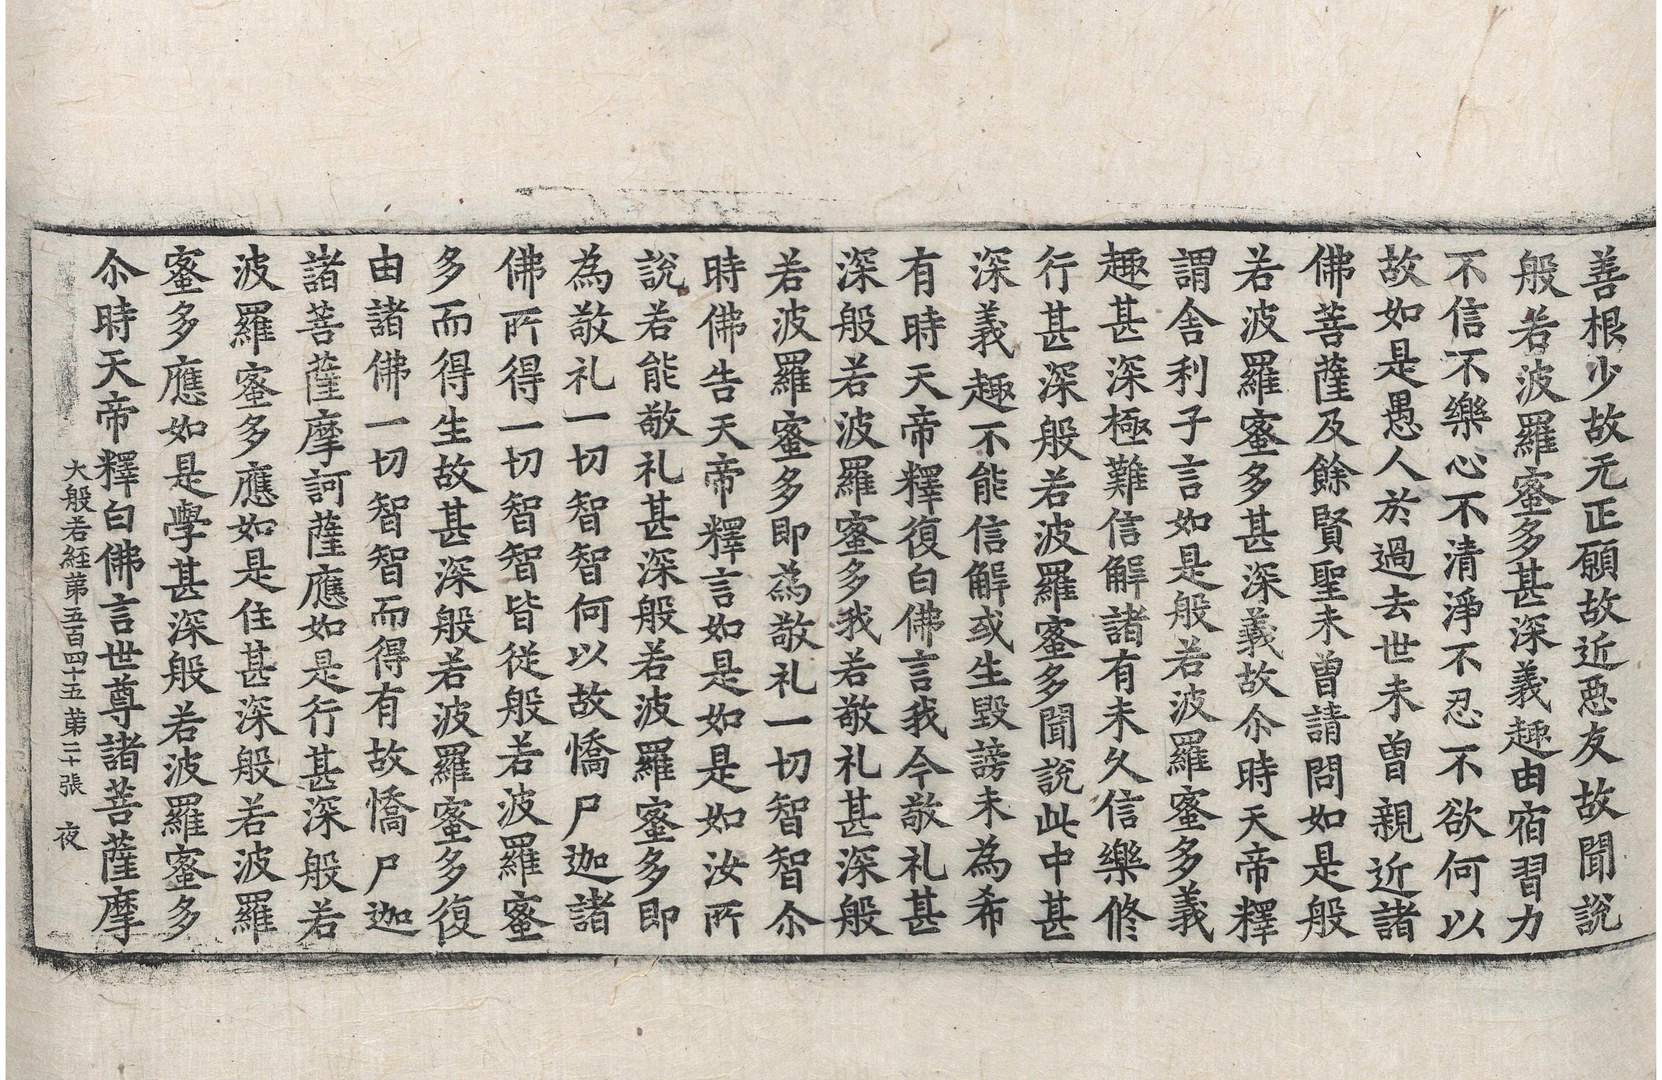 善根少故无正願故近惡友故聞說
般若波羅蜜多甚深義趣由宿習力
不信不樂心不清淨不忍不欲何以
故如是愚人於過去世未曾親近諸
佛菩薩及餘賢聖未曾請問如是般
若波羅蜜多甚深義故尒時天帝釋
謂舍利子言如是般若波羅蜜多義
趣甚深極難信解諸有未久信樂修
行甚深般若波羅蜜多聞說此中甚
深義趣不能信解或生毀謗未為希
有時天帝釋復白佛言我今敬礼甚
深般若波羅蜜多我若敬礼甚深般
若波羅蜜多即為敬礼一切智智尒
時佛告天帝釋言如是如是如汝所
說若能敬礼甚深般若波羅蜜多即
為敬礼一切智智何以故憍尸迦諸
佛所得一切智智皆從般若波羅蜜
多而得生故甚深般若波羅蜜多復
由諸佛一切智智而得有故憍尸迦
諸菩薩摩訶薩應如是行甚深般若
波羅蜜多應如是住甚深般若波羅
蜜多應如是學甚深般若波羅蜜多
尒時天帝釋白佛言世尊諸菩薩摩
大般若経第五百四十五 第二十張 夜